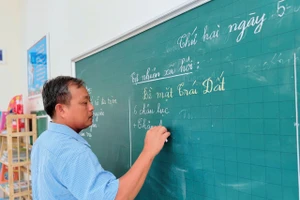 Thứ hai ngày 5
Tự nhiên xã hội:
Bề mặt Trái Đất
6 châu lục
+ Châu